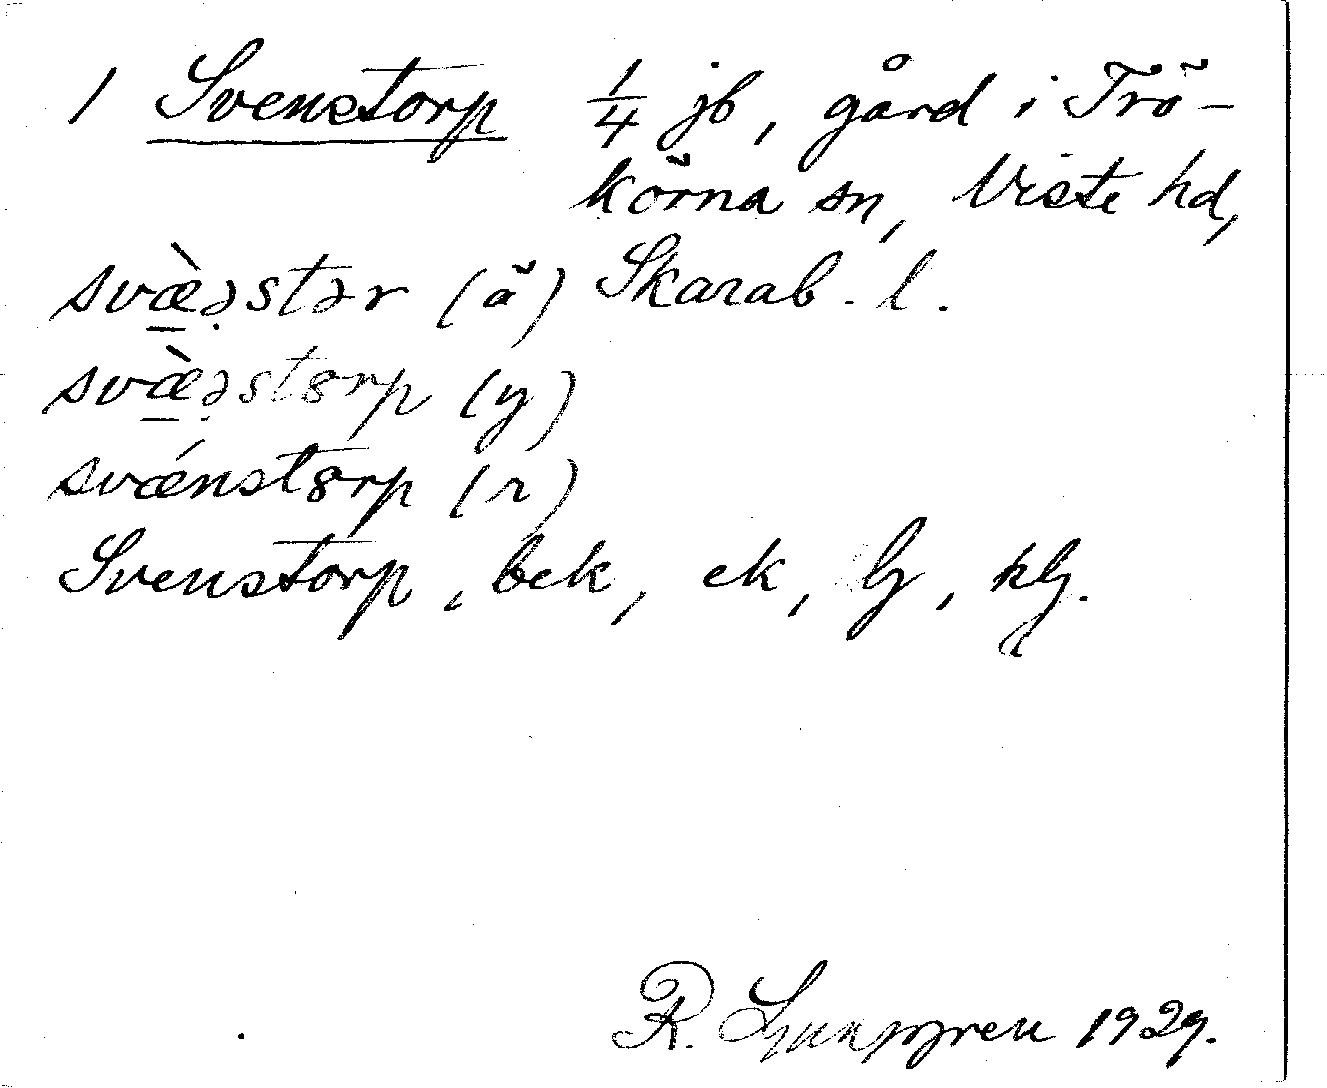 1 Svenstorp 1/4 jb, gård i Trö-
körna sn, Viste hd,
svæ̱̀ə̣stər (ä) Skarab. l.
svæ̱̀ə̣stɞrp (y)
svǽnstɞrp (r)
Svenstorp, bek, ek, lj, klj.
R. Ljunggren 1929.